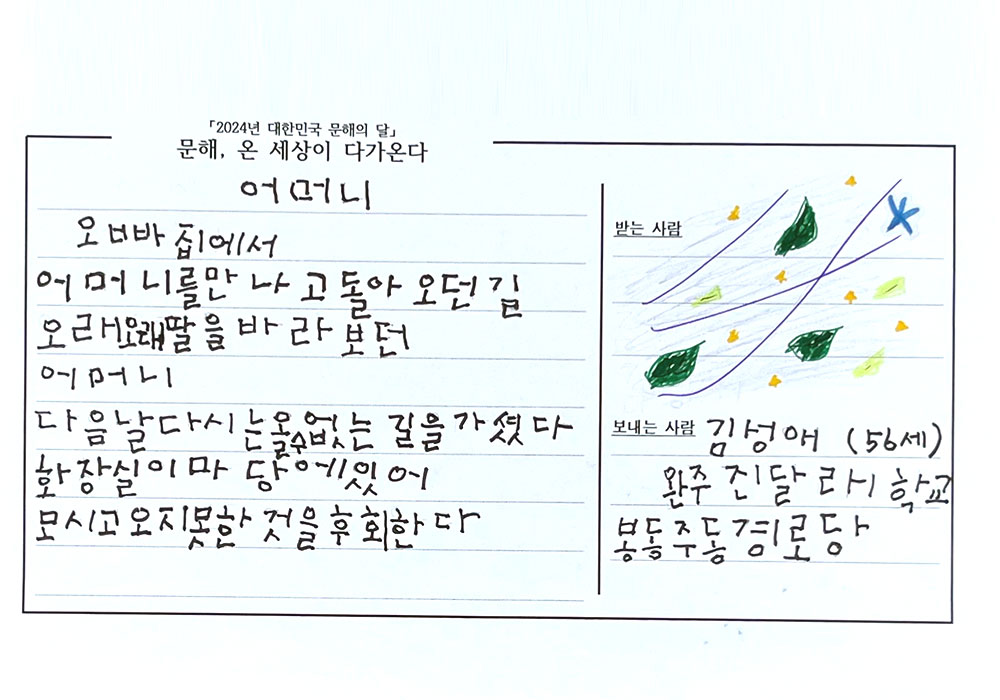 「2024년 대한민국 문해의 달」
문해, 온 세상이 다가온다
어머니
오빠집에서
어머니를만나고돌아오던길
오래오래딸을바라보던
어머니
다음날다시는올수없는길을가셨다
화장실이마당에있어
모시고오지못한것을후회한다
받는 사람
보내는 사람 김성애 (56세)
완주진달래학교
봉동주동경로당